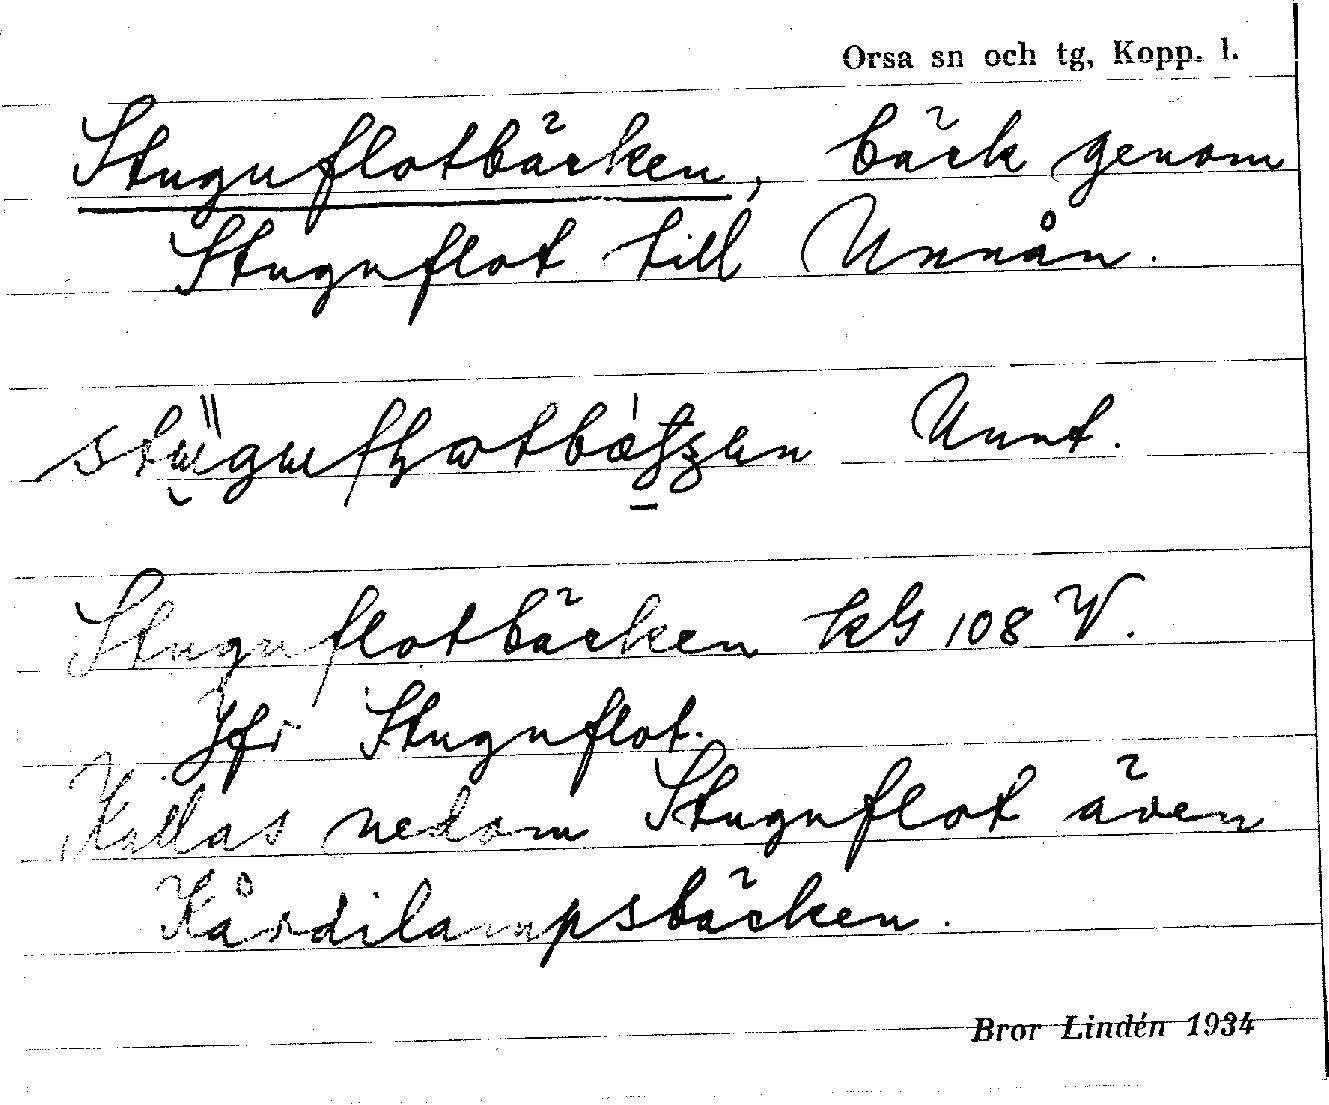 Orsa sn och tg, Kopp. l.
Stuguflotbäcken, bäck genom
Stuguflot till Unnån.
Unnt.
Stuguflotbäcken kG 108 V.
Jfr Stuguflot.
Kallas nedom Stuguflot även
Kårdilampsbäcken.
Bror Lindén 1934